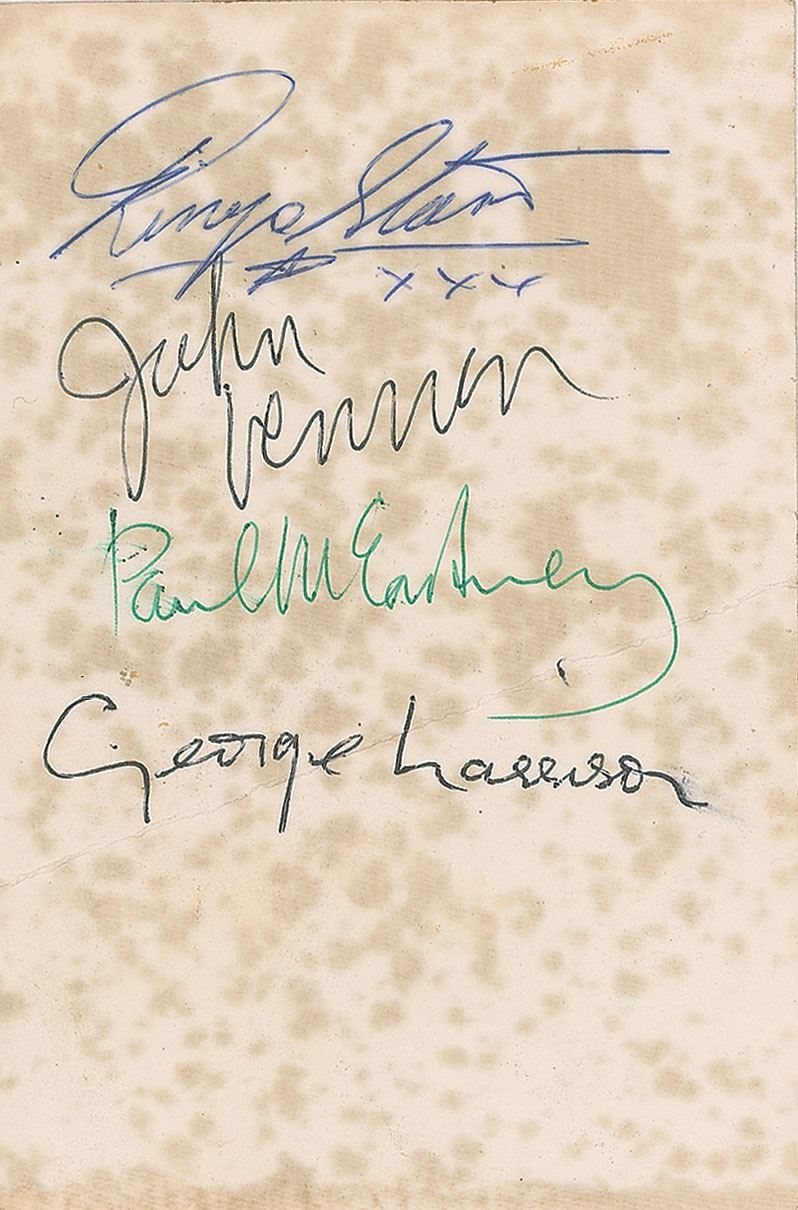 Ringo Starr
xxx
John
Lennon
Paul McCartney
George Harrison